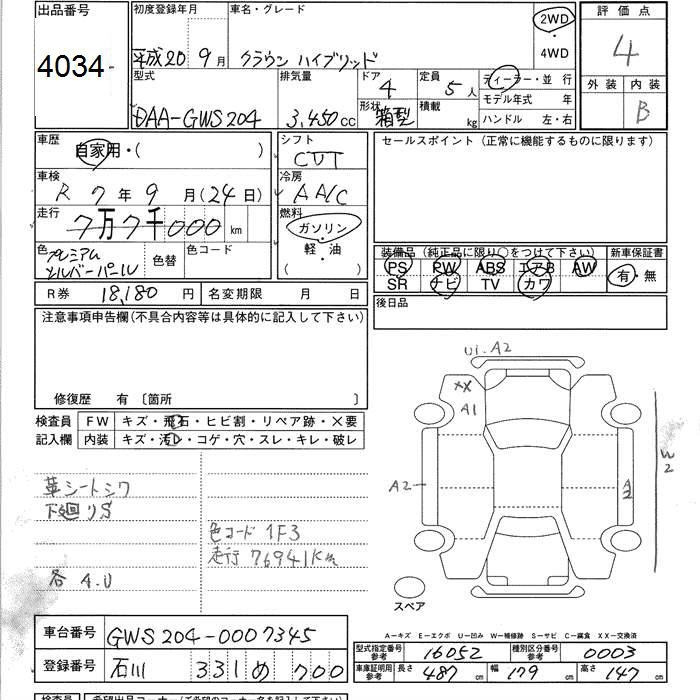 出品番号 4034
初度登録年月 平成20 9月
車名・グレード クラウン ハイブリッド
2WD ・ 4WD
評価点 4
外装 内装 B
型式 DAA-GWS204
排気量 3,450cc
ドア 4 形状 箱型
定員 5人 積載 kg
ディーラー・並行
モデル年式 年
ハンドル 左・右
車歴 自家用・( )
シフト CVT
セールスポイント(正常に機能するものに限ります)
車検 R 7年 9月(24日)
冷房 AA/C
走行 7万7千000km
燃料 ガソリン・軽・油 ( )
色 プレミアムシルバーパール 色替 色コード
装備品(純正品に限り○をつけて下さい) 新車保証書
PS PW ABS エアB AW 有・無
SR ナビ TV カワ
R券 18,180円 名変期限 月 日
後日品
注意事項申告欄(不具合内容等は具体的に記入して下さい)
修復歴 有 〔箇所 〕
検査員記入欄 FW キズ・飛石・ヒビ割・リペア跡・×要
内装 キズ・汚レ・コゲ・穴・スレ・キレ・破レ
革シートシワ
下廻りS
色コード 1F3
走行 76941Km
各 A.U
U1・A2
XX
A1
A2
A2
W2
スペア
A－キズ E－エクボ U－凹み W－補修跡 S－サビ C－腐食 XX－交換済
車台番号 GWS204-0007345
登録番号 石川 331 め 700
型式指定番号 参考 16052 種別区分番号 参考 0003
車庫証明用 参考 長さ 487cm 幅 179cm 高さ 147cm